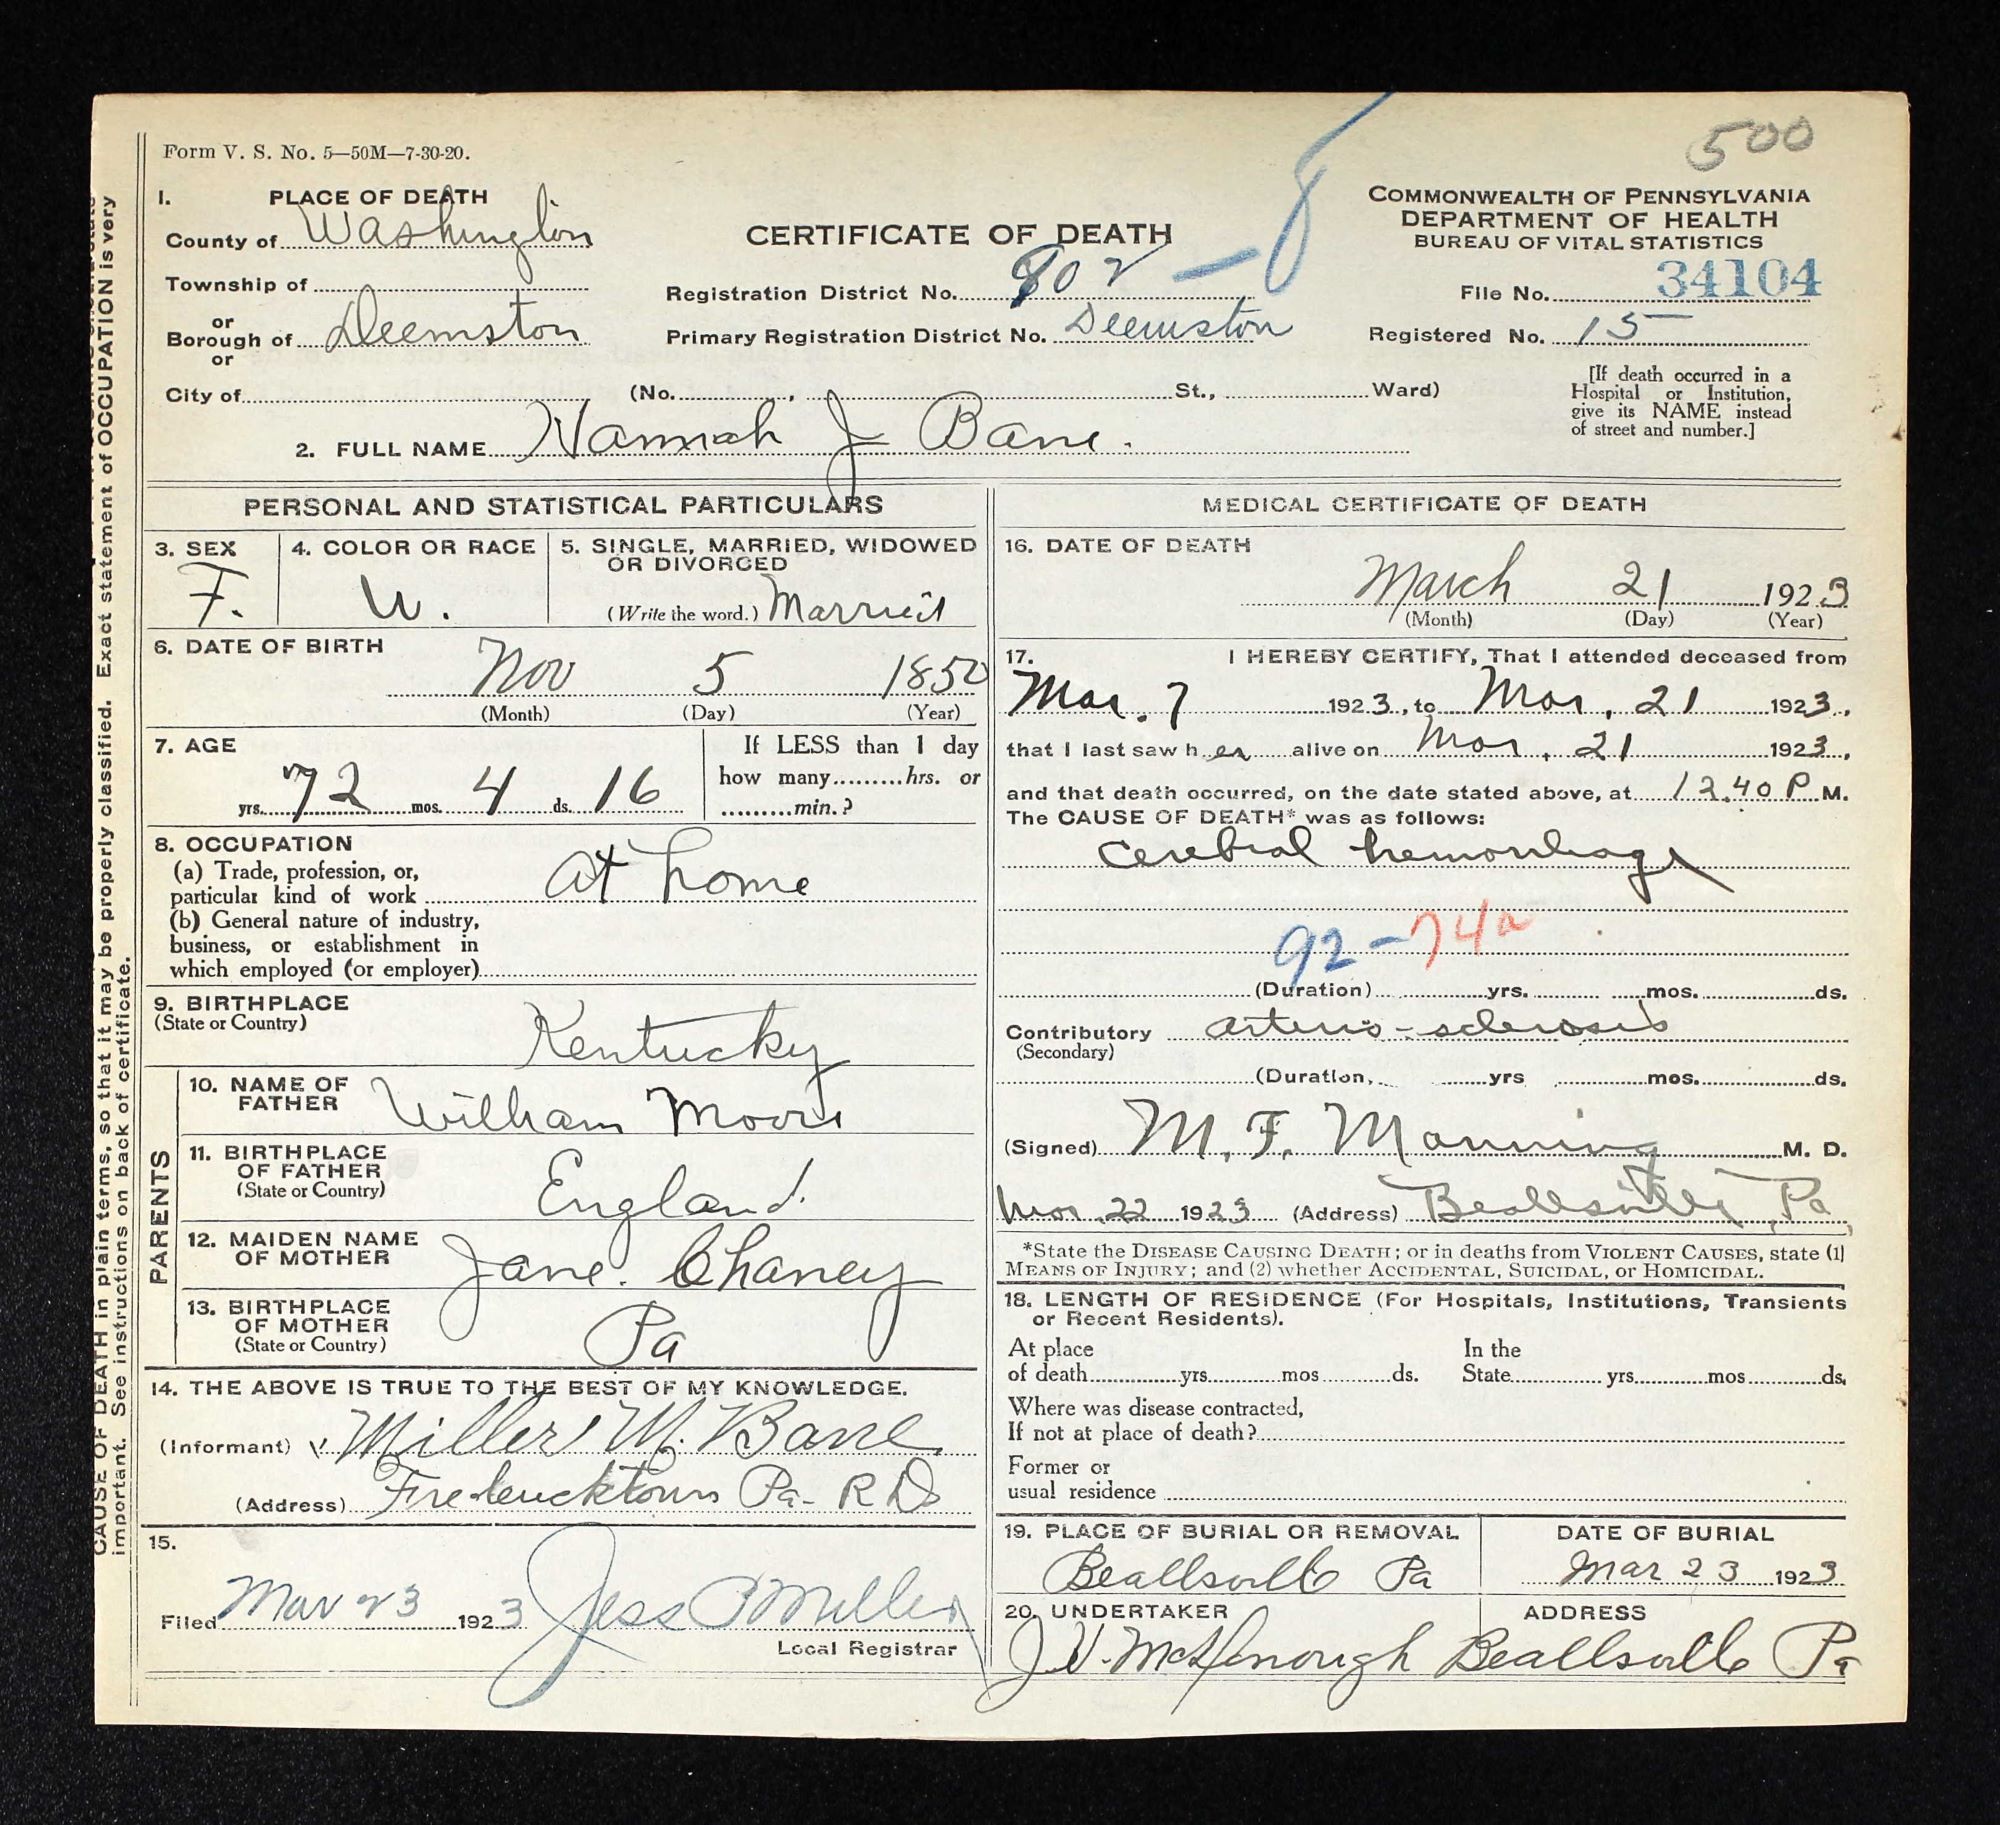 500
Form V. S. No. 5—50M—7-30-20.
1. PLACE OF DEATH
County of Washington
Township of
or
Borough of Deemston
or
City of (No. , St., Ward)
CERTIFICATE OF DEATH
Registration District No. 802 - 8
Primary Registration District No. Deemston
COMMONWEALTH OF PENNSYLVANIA
DEPARTMENT OF HEALTH
BUREAU OF VITAL STATISTICS
File No. 34104
Registered No. 15
[If death occurred in a
Hospital or Institution,
give its NAME instead
of street and number.]
2. FULL NAME Hannah J Bane.
PERSONAL AND STATISTICAL PARTICULARS
3. SEX
F.
4. COLOR OR RACE
W.
5. SINGLE, MARRIED, WIDOWED
OR DIVORCED
(Write the word.) Married
6. DATE OF BIRTH
Nov 5 1850
(Month) (Day) (Year)
7. AGE
yrs. 72 mos. 4 ds. 16
If LESS than 1 day
how many.........hrs. or
.........min.?
8. OCCUPATION
(a) Trade, profession, or,
particular kind of work at home
(b) General nature of industry,
business, or establishment in
which employed (or employer)
9. BIRTHPLACE
(State or Country)
Kentucky
PARENTS
10. NAME OF
FATHER William Moore
11. BIRTHPLACE
OF FATHER
(State or Country) England
12. MAIDEN NAME
OF MOTHER Jane. Chaney
13. BIRTHPLACE
OF MOTHER
(State or Country) Pa
14. THE ABOVE IS TRUE TO THE BEST OF MY KNOWLEDGE.
(Informant) Miller M. Bane
(Address) Fredericktown Pa- R D
15.
Filed Mar 23 1923 Jess Miller
Local Registrar
MEDICAL CERTIFICATE OF DEATH
16. DATE OF DEATH
March 21 1923
(Month) (Day) (Year)
17. I HEREBY CERTIFY, That I attended deceased from
Mar. 7 1923, to Mar. 21 1923,
that I last saw her alive on Mar. 21 1923,
and that death occurred, on the date stated above, at 12.40 P M.
The CAUSE OF DEATH* was as follows:
Cerebral hemorrhage
92 - 74a
(Duration) yrs. mos. ds.
Contributory arterio-sclerosis
(Secondary)
(Duration, yrs mos. ds.
(Signed) M. F. Manning M. D.
Mar. 22 1923 (Address) Beallsville, Pa,
*State the DISEASE CAUSING DEATH; or in deaths from VIOLENT CAUSES, state (1)
MEANS OF INJURY; and (2) whether ACCIDENTAL, SUICIDAL, or HOMICIDAL.
18. LENGTH OF RESIDENCE (For Hospitals, Institutions, Transients
or Recent Residents).
At place In the
of death yrs. mos ds. State yrs. mos ds.
Where was disease contracted,
If not at place of death?
Former or
usual residence
19. PLACE OF BURIAL OR REMOVAL
Beallsville Pa
DATE OF BURIAL
Mar 23 1923
20. UNDERTAKER ADDRESS
J V. Beallsville Pa
CAUSE OF DEATH in plain terms, so that it may be properly classified. Exact statement of OCCUPATION is very
important. See instructions on back of certificate.